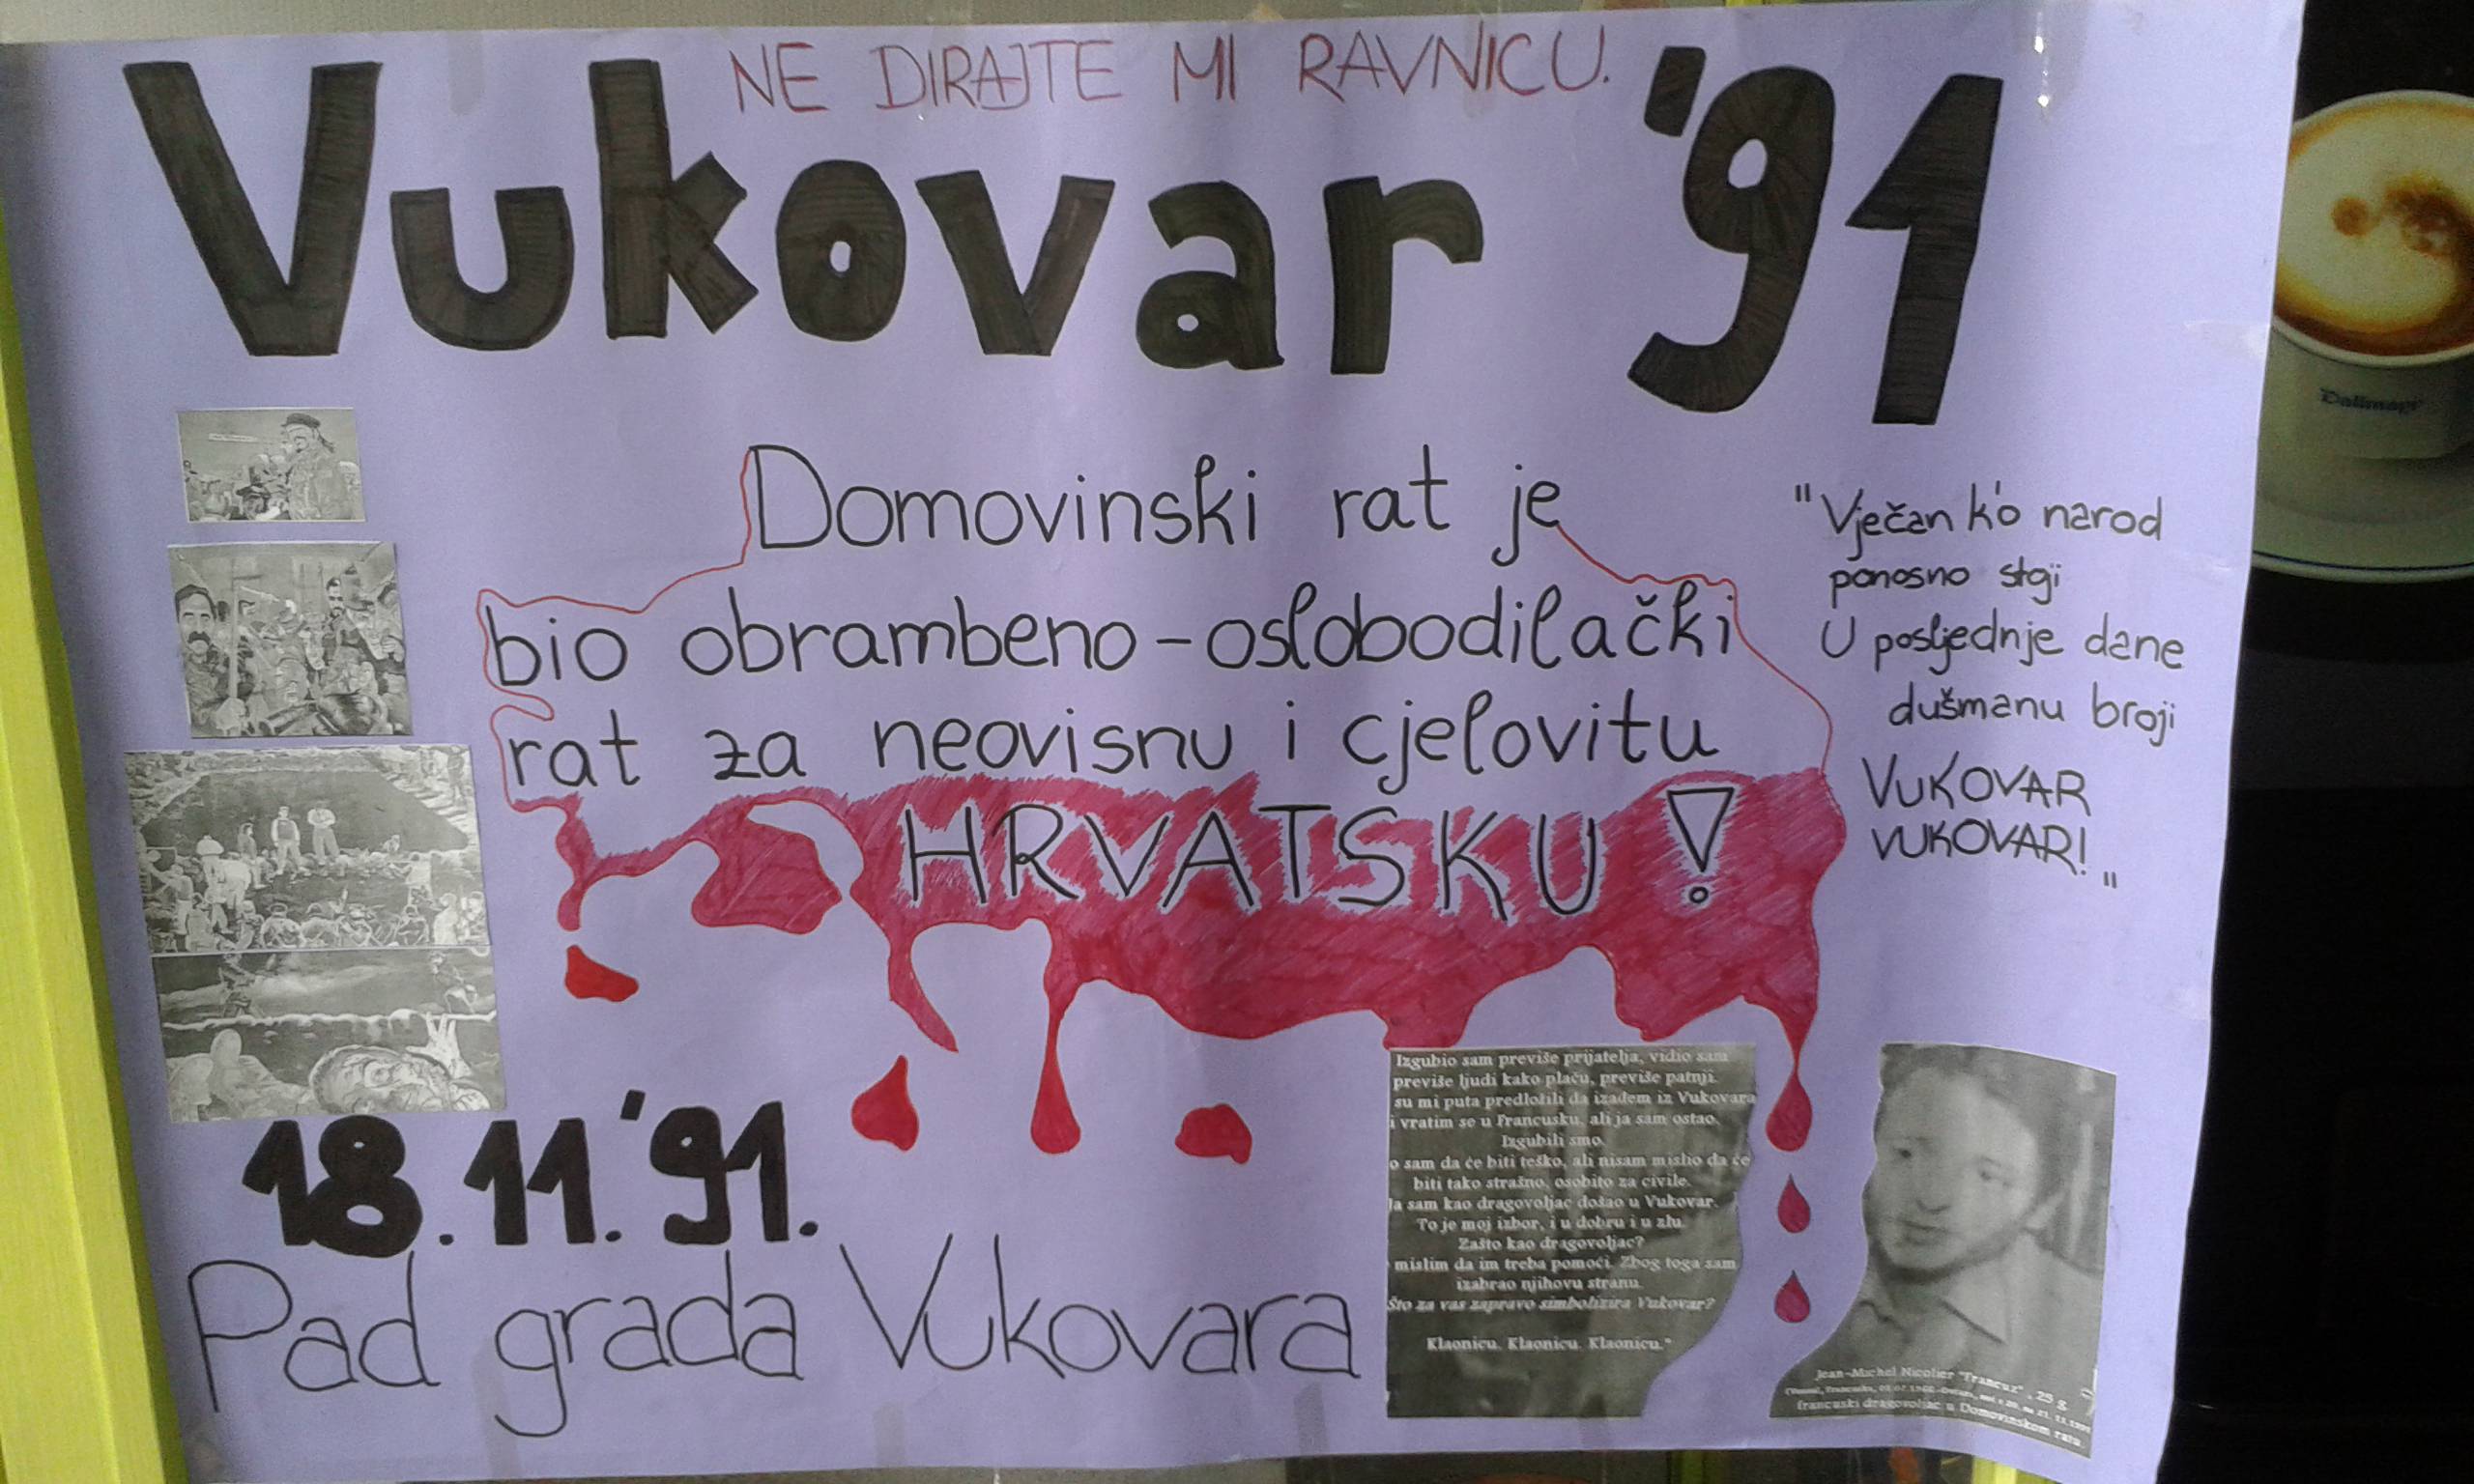 NE DIRAJTE MI RAVNICU.
Vukovar '91
Domovinski rat je
bio obrambeno-oslobodilački
rat za neovisnu i cjelovitu
HRVATSKU!
"Vječan k'o narod
ponosno stoji
U posljednje dane
dušmanu broji
VUKOVAR
VUKOVAR!"
18.11.'91.
Pad grada Vukovara
Izgubio sam previše prijatelja, vidio sam
previše ljudi kako plaču, previše patnji.
su mi puta predložili da izađem iz Vukovara
i vratim se u Francusku, ali ja sam ostao.
Izgubili smo.
o sam da će biti teško, ali nisam mislio da će
biti tako strašno, osobito za civile.
Ja sam kao dragovoljac došao u Vukovar.
To je moj izbor, i u dobru i u zlu.
Zašto kao dragovoljac?
mislim da im treba pomoći. Zbog toga sam
izabrao njihovu stranu.
Što za vas zapravo simbolizira Vukovar?
Klaonicu. Klaonicu. Klaonicu."
Jean-Michel Nicolier "Francuz", 25 g
francuski dragovoljac u Domovinskom ratu.
Dallmayr